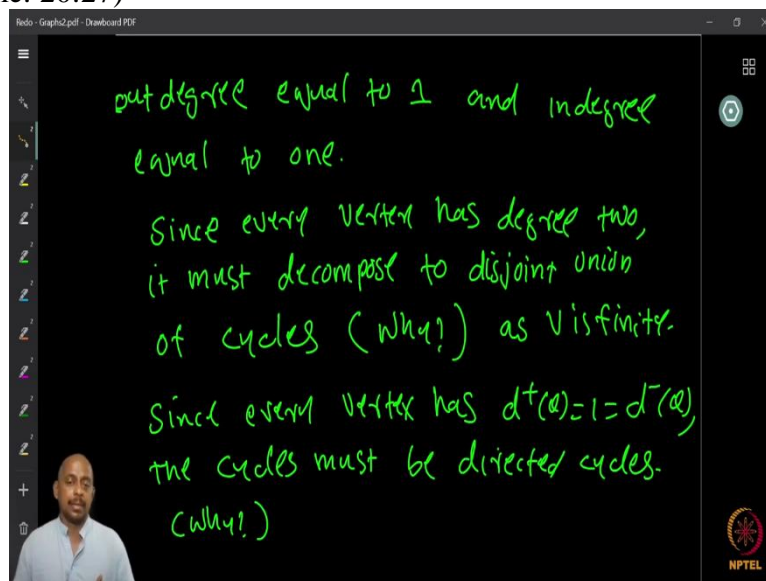 Redo - Graphs2.pdf - Drawboard PDF
outdegree equal to 1 and indegree
equal to one.
Since every vertex has degree two,
it must decompose to disjoint union
of cycles (Why?) as V is finite.
Since every vertex has d⁺(a)=1=d⁻(a),
the cycles must be directed cycles.
(Why?)
NPTEL